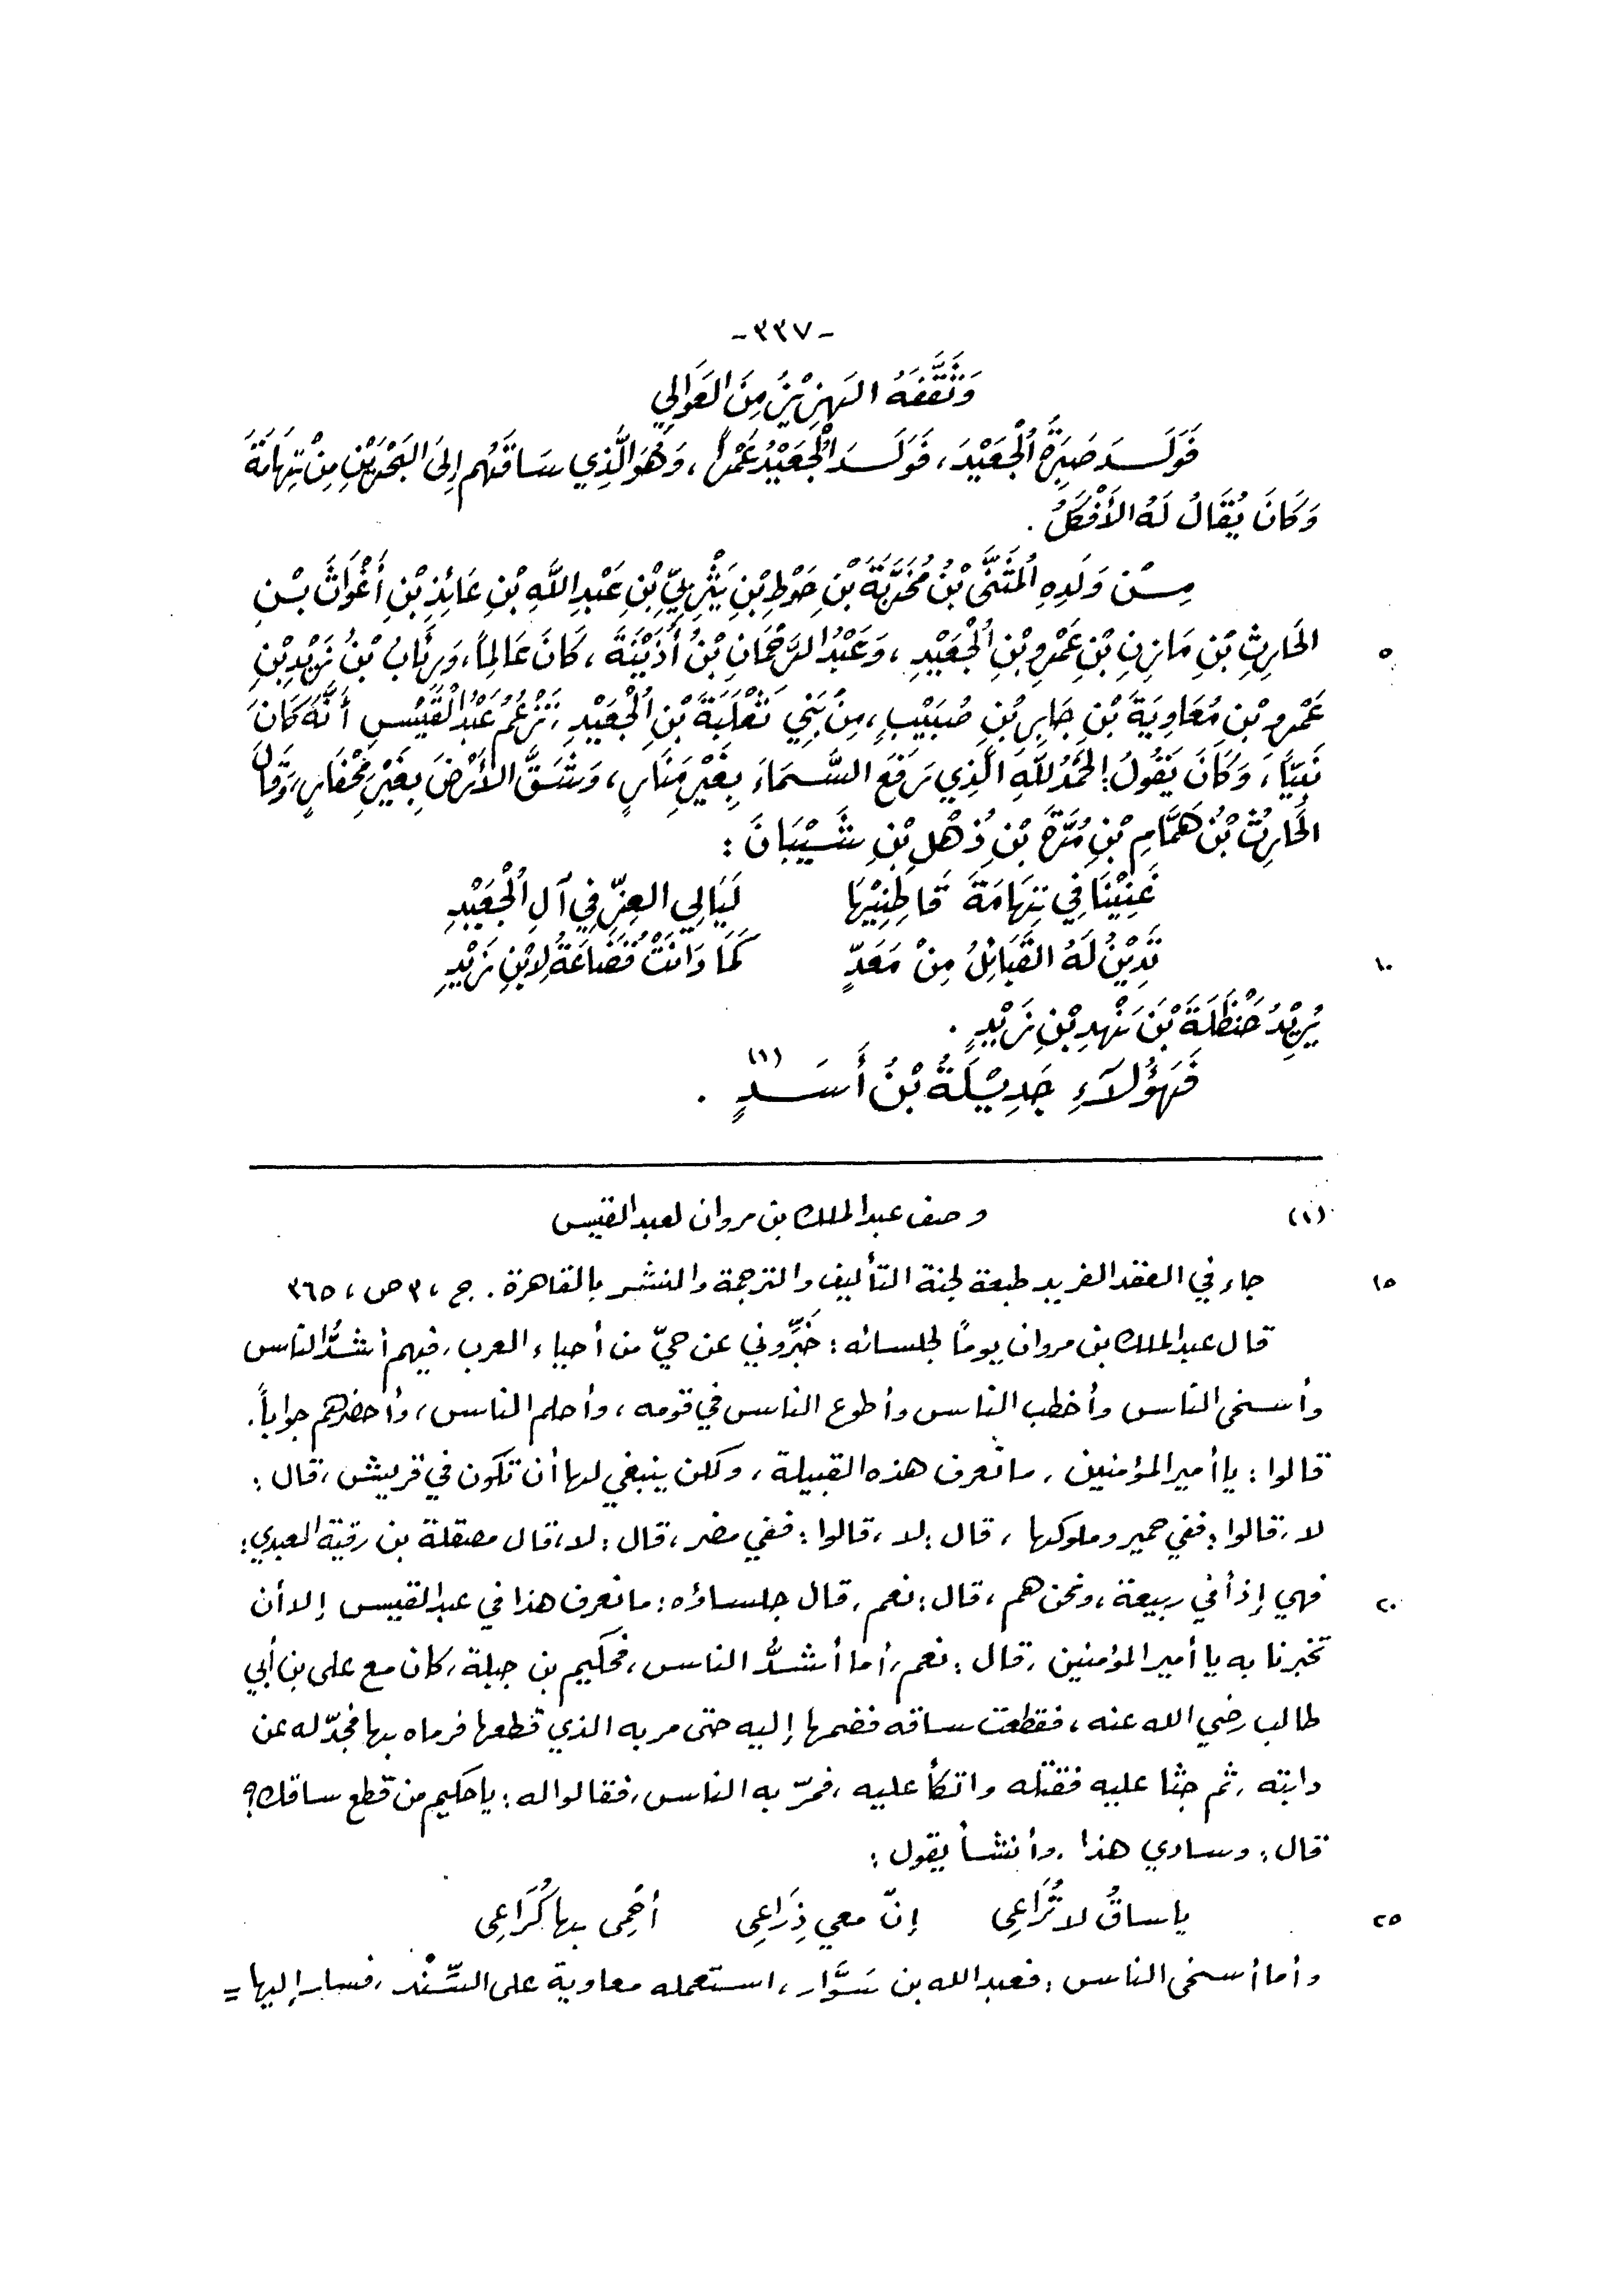 -٣٣٧-
وَثَقَّفَهُ الهِزبْزُ مِنَ العَوَالِي
فَوَلَدَ صَبِرَةُ الْجُعَيْدَ، فَوَلَدَ الْجُعَيْدُ عَمْراً، وَهُوَ الَّذِي سَاقَهُم إلى البَحْرَيْنِ مِنْ تِهَامَةَ
وَكَانَ يُقَالُ لَهُ الأَفْكَلُ .
مِنْ وَلَدِهِ الْمُثَنَّى بْنُ مُخَرَّبَةَ بْنِ حَوْطِ بْنِ يَثْرِبِيِّ بْنِ عَبْدِ اللَّهِ بْنِ عَائِذِ بْنِ أَغْوَاثَ بْنِ
الحَارِثِ بْنِ مَازِنِ بْنِ عَمْرِو بْنِ الْجُعَيْدِ ، وَعَبْدُ الرَّحْمَانِ بْنُ أُذَيْنَةَ ، كَانَ عَالِماً، وَرِئَابُ بْنُ زَيْدِ بْنِ ٥
عَمْرِو بْنِ مُعَاوِيَةَ بْنِ جَابِرِ بْنِ ضُبَيْبٍ، مِنْ بَنِي ثَعْلَبَةَ بْنِ الْجُعَيْدِ، تَزْعُمُ عَبْدُ الْقَيْسِ أَنَّهُ كَانَ
نَبِيّاً، وَكَانَ يَقُولُ: الحَمْدُ للَّهِ الَّذِي رَفَعَ السَّمَاءَ بِغَيْرِ مَنَارٍ، وَشَقَّ الأَرْضَ بِغَيْرِ مِحْفَارٍ، وَقَالَ
الحَارِثُ بْنُ هَمَّامِ بْنِ مُرَّةَ بْنِ ذُهْلِ بْنِ شَيْبَانَ :
غَنِيْنَا فِي تِهَامَةَ قَاطِنِيْهَا لَيَالِي العِزِّ فِي آلِ الْجُعَيْدِ
تَدِيْنُ لَهُ القَبَائِلُ مِنْ مَعَدٍّ كَمَا دَانَتْ قُضَاعَةُ لِابْنِ زَيْدِ ١٠
يُرِيْدُ حَنْظَلَةَ بْنَ نَهْدِ بْنِ زَيْدٍ .
فَهَؤُلَاءِ جَدِيْلَةُ بْنُ أَسَدٍ (١) .
(١) وصف عبد الملك بن مروان لعبد القيس
جاء في العقد الفريد طبعة لجنة التأليف والترجمة والنشر بالقاهرة . ج ، ٣ ص ، ٣٦٥ ١٥
قال عبد الملك بن مروان يوماً لجلسائه : خَبِّروني عن حيّ من أحياء العرب، فيهم أشدُّ الناس
وأسخى الناس وأخطب الناس وأطوع الناس في قومه ، وأحلم الناس، وأحضرهم جواباً.
قالوا : يا أمير المؤمنين ، ما نعرف هذه القبيلة ، ولكن ينبغي لها أن تكون في قريش ، قال :
لا ، قالوا : ففي حمير وملوكها ، قال : لا ، قالوا : ففي مضر ، قال : لا ، قال مصقلة بن رقية العبدي :
فهي إذاً في ربيعة ، ونحن هم ، قال : نعم ، قال جلساؤه : ما نعرف هذا في عبد القيس إلا أن ٢٠
تخبرنا به يا أمير المؤمنين ، قال : نعم ، أما أشدُّ الناس ، فحكيم بن جبلة ، كان مع علي بن أبي
طالب رضي الله عنه ، فقطعت ساقه فضمها إليه حتى مر به الذي قطعها فرماه بها فجدّله عن
دابته ، ثم جثا عليه فقتله واتكأ عليه ، فمرّ به الناس ، فقالوا له : يا حكيم من قطع ساقك ؟
قال : وسادي هذا ، وأنشأ يقول :
يا ساقُ لا تُرَاعِي إنّ معي ذِرَاعِي أحْمِى بها كُرَاعِي ٢٥
وأما أسخى الناس : فعبد الله بن سَوَّار ، استعمله معاوية على السِّنْد ، فسار إليها =